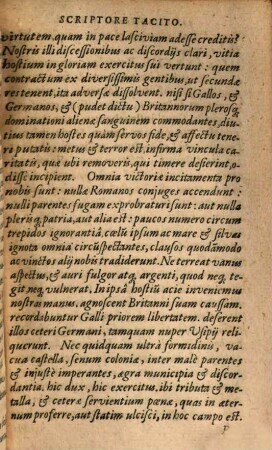 SCRIPTORE TACITO.
virtutem, quam in pace lasciviam adesse creditis?
Nostris illi discessionibus ac discordijs clari, vitia
hostium in gloriam exercitus sui vertunt: quem
contractũm ex diversissimis gentibus, ut secundæ
res tenent, ita adversæ dissolvent. nisi si Gallos, &
Germanos, & (pudet dictu) Britannorum plerosq;
dominationi alienæ sanguinem commodantes, diu
tius tamen hostes quàm servos fide, & affectu tene
ri putatis: metus & terror est, infirma vincula ca
ritatis, quæ ubi removeris, qui timere desierint, o-
disse incipient. Omnia victoriæ incitamenta pro
nobis sunt: nullæ Romanos conjuges accendunt:
nulli parentes fugam exprobraturi sunt: aut nulla
plerisq; patria, aut alia est: paucos numero circum
trepidos ignorantiâ, cœlũ ipsum ac mare & silvas
ignota omnia circũspectantes, clausos quodãmodo
ac vinctos alij nobis tradiderunt. Ne terreat vanus
aspectus, & auri fulgor atq; argenti, quod neq; te-
git neq; vulnerat. In ipsâ hostiũ acie inveniemus
nostras manus. agnoscent Britanni suam caussam,
recordabuntur Galli priorem libertatem. deserent
illos ceteri Germani, tamquam nuper Usipij reli-
querunt. Nec quidquam ultra formidinis, va-
cua castella, senum coloniæ, inter malè parentes
& injustè imperantes, ægra municipia & discor-
dantia. hic dux, hic exercitus. ibi tributa & me-
talla, & ceteræ servientium pœnæ, quas in æter-
num proferre, aut statim ulcisci, in hoc campo est.
P